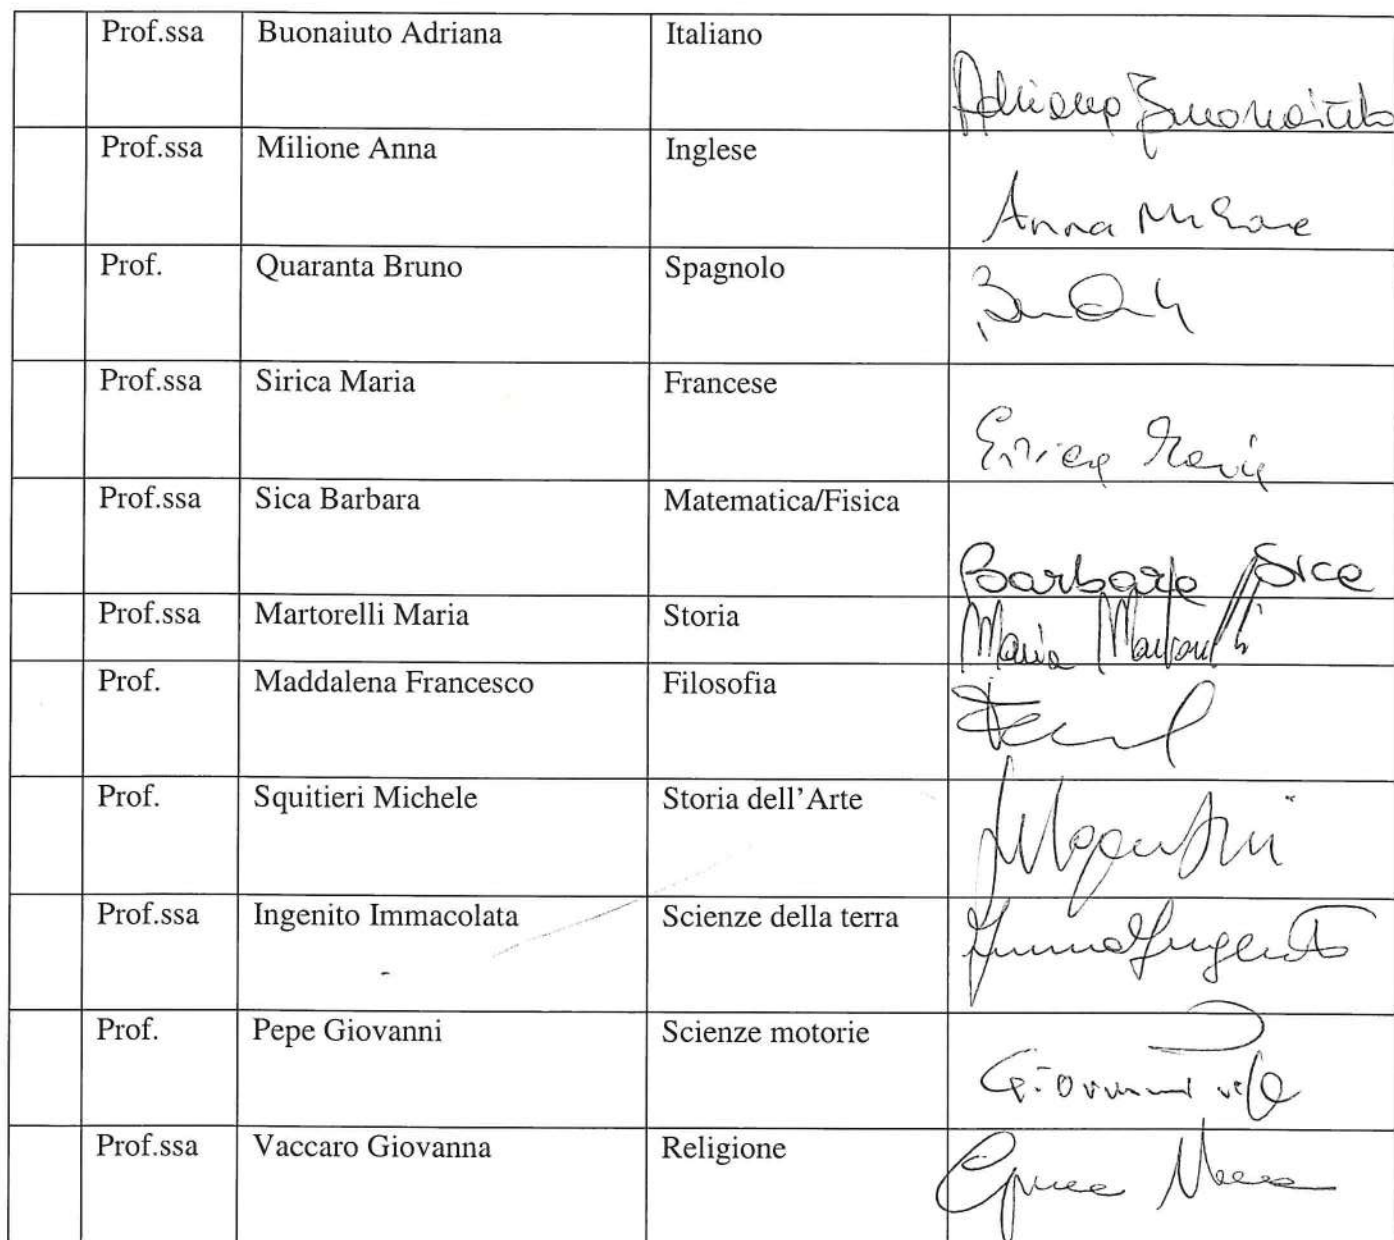 Prof.ssa Buonaiuto Adriana Italiano Adriana Buonaiuto
Prof.ssa Milione Anna Inglese Anna Milione
Prof. Quaranta Bruno Spagnolo
Prof.ssa Sirica Maria Francese Sirica Maria
Prof.ssa Sica Barbara Matematica/Fisica Barbara Sica
Prof.ssa Martorelli Maria Storia Maria Martorelli
Prof. Maddalena Francesco Filosofia
Prof. Squitieri Michele Storia dell'Arte
Prof.ssa Ingenito Immacolata Scienze della terra Imma Ingenito
Prof. Pepe Giovanni Scienze motorie Giovanni Pepe
Prof.ssa Vaccaro Giovanna Religione